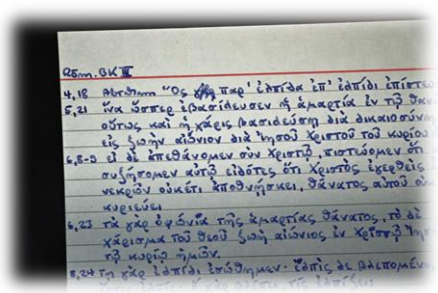 Röm. BK III
4,18 Ὃς παρ' ἐλπίδα ἐπ' ἐλπίδι ἐπίστευ
5,21 ἵνα ὥσπερ ἐβασίλευσεν ἡ ἁμαρτία ἐν τῷ θαν
οὕτως καὶ ἡ χάρις βασιλεύσῃ διὰ δικαιοσύνη
εἰς ζωὴν αἰώνιον διὰ Ἰησοῦ Χριστοῦ τοῦ κυρίου
6,8-9 εἰ δὲ ἀπεθάνομεν σὺν Χριστῷ, πιστεύομεν ὅτι
συζήσομεν αὐτῷ εἰδότες ὅτι Χριστὸς ἐγερθεὶς
νεκρῶν οὐκέτι ἀποθνῄσκει, θάνατος αὐτοῦ οὐ
κυριεύει
6,23 τὰ γὰρ ὀψώνια τῆς ἁμαρτίας θάνατος, τὸ δὲ
χάρισμα τοῦ θεοῦ ζωὴ αἰώνιος ἐν Χριστῷ Ἰησ
τῷ κυρίῳ ἡμῶν.
8,24 τῇ γὰρ ἐλπίδι ἐσώθημεν· ἐλπὶς δὲ βλεπομέν